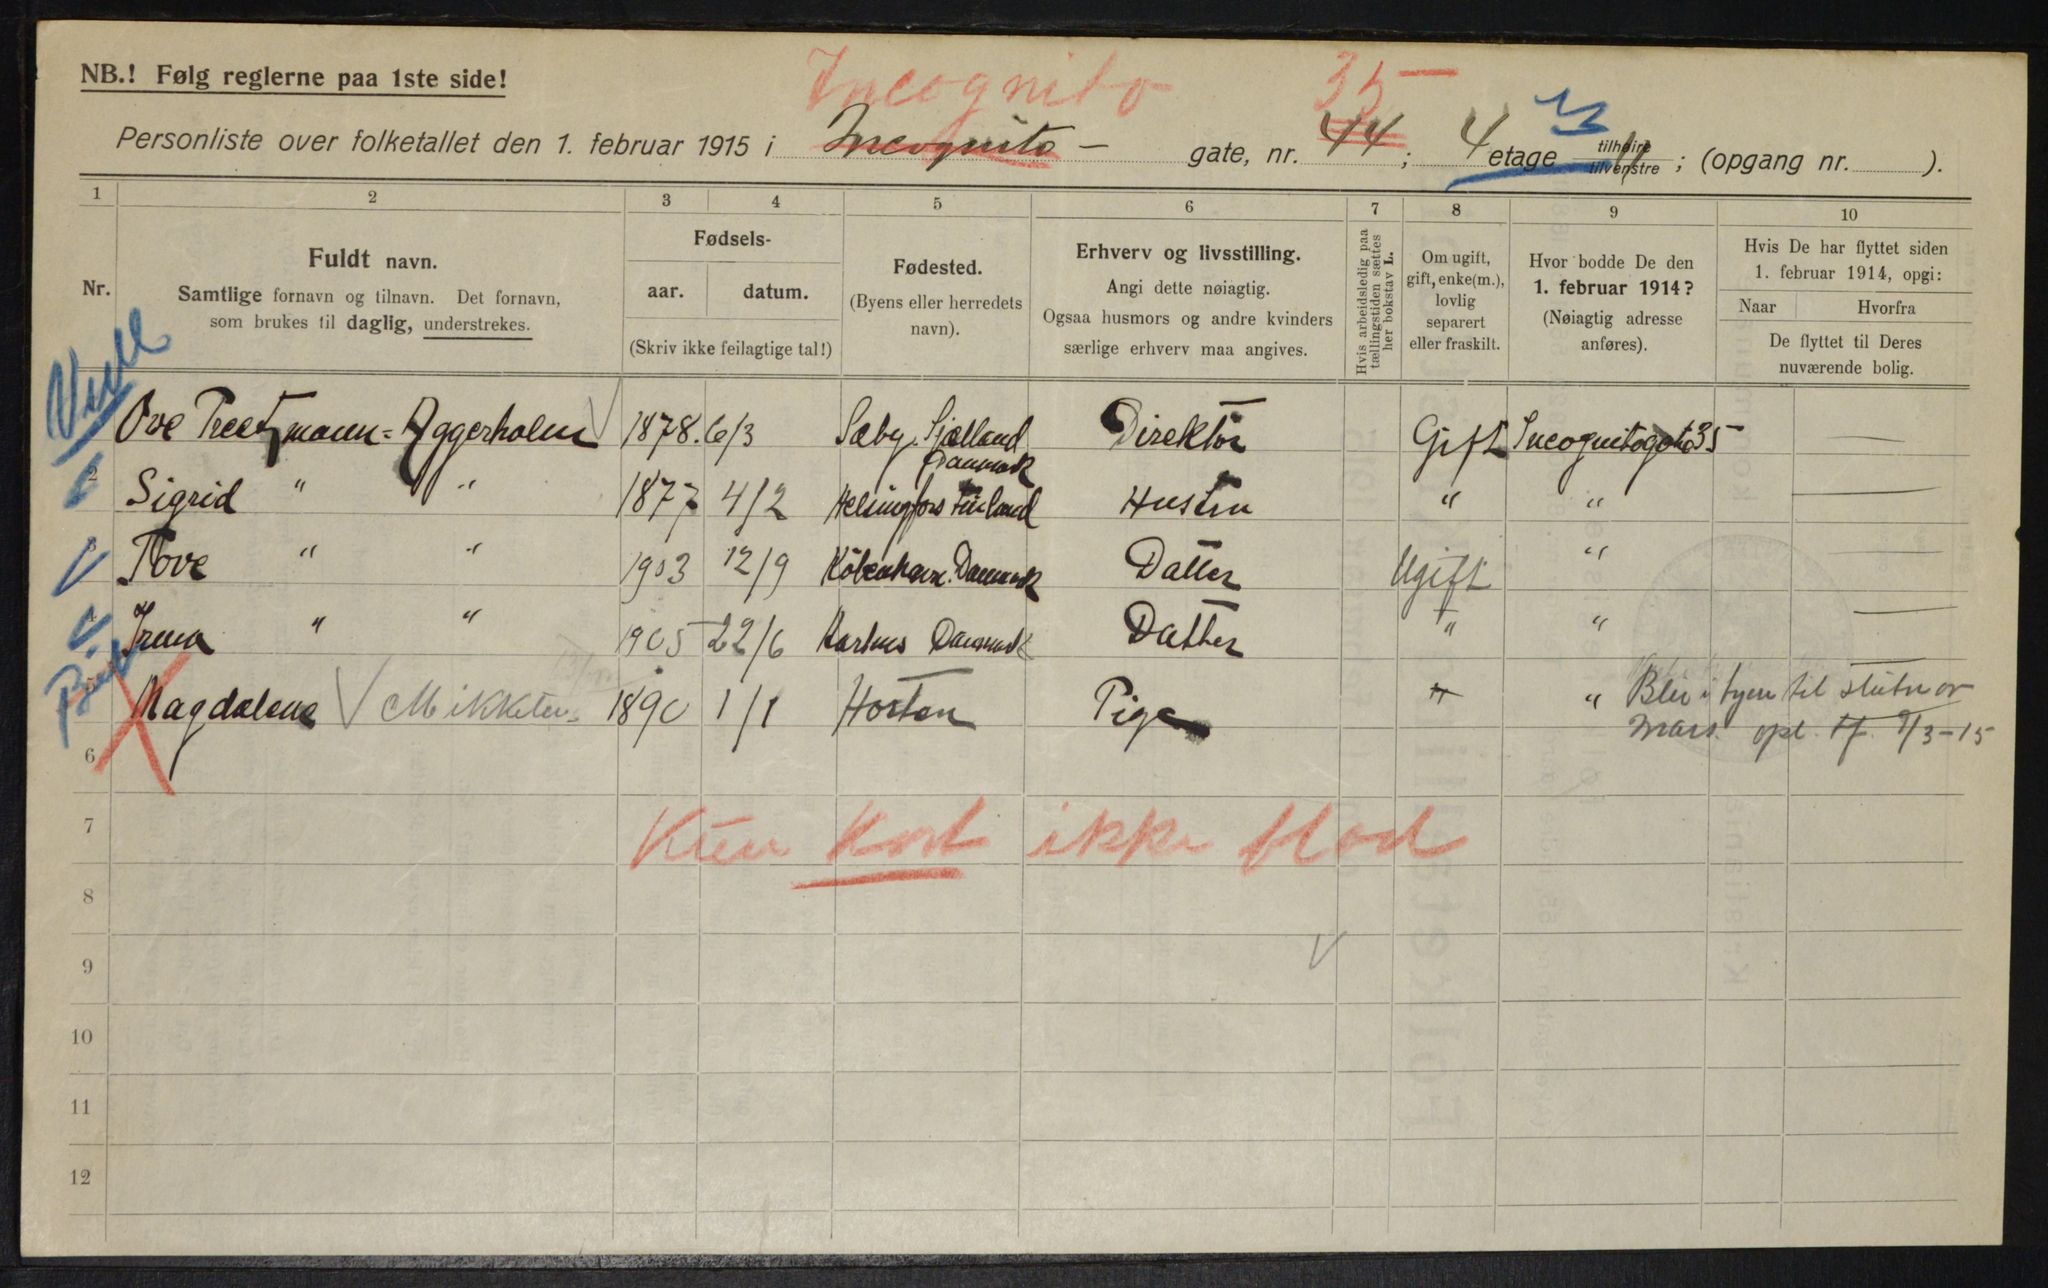 NB.! Følg reglerne paa 1ste side!
Incognito 35
Personliste over folketallet den 1. februar 1915 i Incognito- gate, nr. 44; 4 etage tilhøire tilvenstre; (opgang nr. ).
1 2 3 4 5 6 7 8 9 10
Nr.
Fuldt navn.
Samtlige fornavn og tilnavn. Det fornavn,
som brukes til daglig, understrekes.
Fødsels-
aar. datum.
(Skriv ikke feilagtige tal!)
Fødested.
(Byens eller herredets
navn).
Erhverv og livsstilling.
Angi dette nøiagtig.
Ogsaa husmors og andre kvinders
særlige erhverv maa angives.
Hvis arbeidsledig paa
tællingstiden sættes
her bokstav L.
Om ugift,
gift, enke(m.),
lovlig
separert
eller fraskilt.
Hvor bodde De den
1. februar 1914?
(Nøiagtig adresse
anføres).
Hvis De har flyttet siden
1. februar 1914, opgi:
Naar Hvorfra
De flyttet til Deres
nuværende bolig.
Ove Preetzmann-Aggerholm 1878. 6/3 Sæby. Sjælland Danmark Direktör Gift Incognitogate 35 —
2 Sigrid " " 1877 4/2 Helsingfors Finland Hustru " " —
Tove " " 1903 12/9 Köbenhavn. Danmark Datter Ugift " —
4 Irma " " 1905 22/6 Aarhus Danmark Datter " " —
Magdalene Mikkelsen 1890 1/1 Horten Pige " " Blir i byen til slutn av
Mars. opl. tf. 9/3-15
6
7 Kun Kort ikke blad
8
9
10
11
12